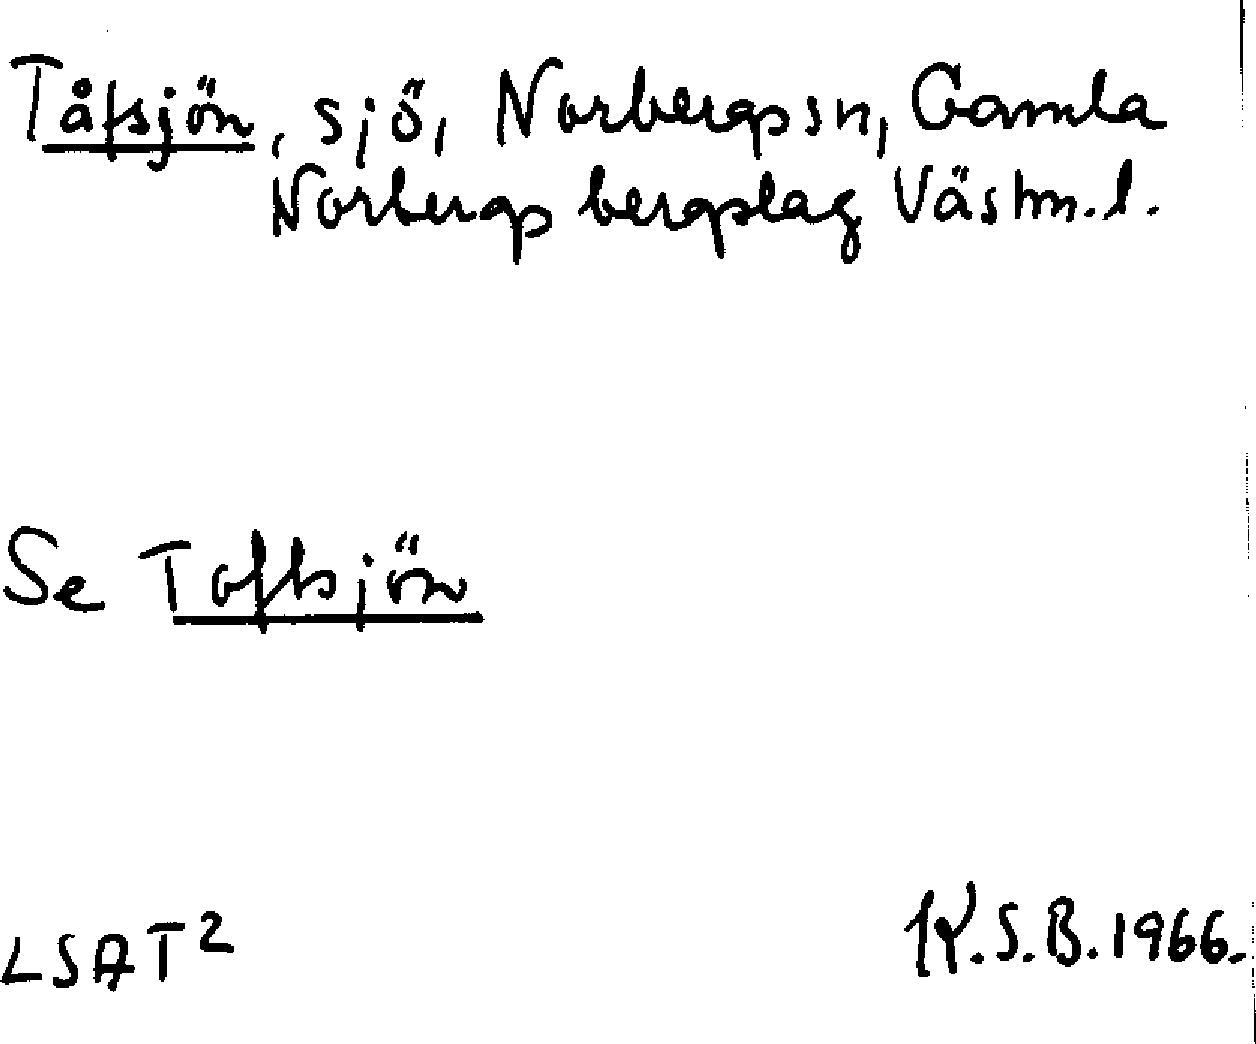 Tåfsjön, sjö, Norbergs sn, Gamla
Norbergs bergslag Västm.l.
Se Toftsjön
LSA T²
K.S.B. 1966.